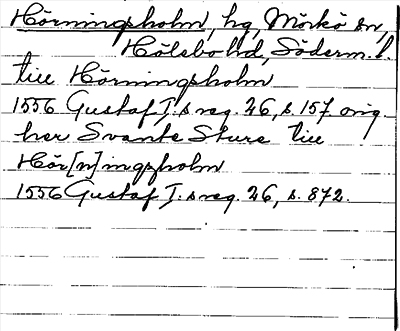 Hörningsholm, hg, Mörkö sn,
Hölebo hd, Söderm. l.
till Hörningsholm
1556 Gustaf I.s reg. 26, s. 157 orig.
her Svante Sture till
Hör[n]ingxholm
1556 Gustaf I.s reg. 26, s. 872.